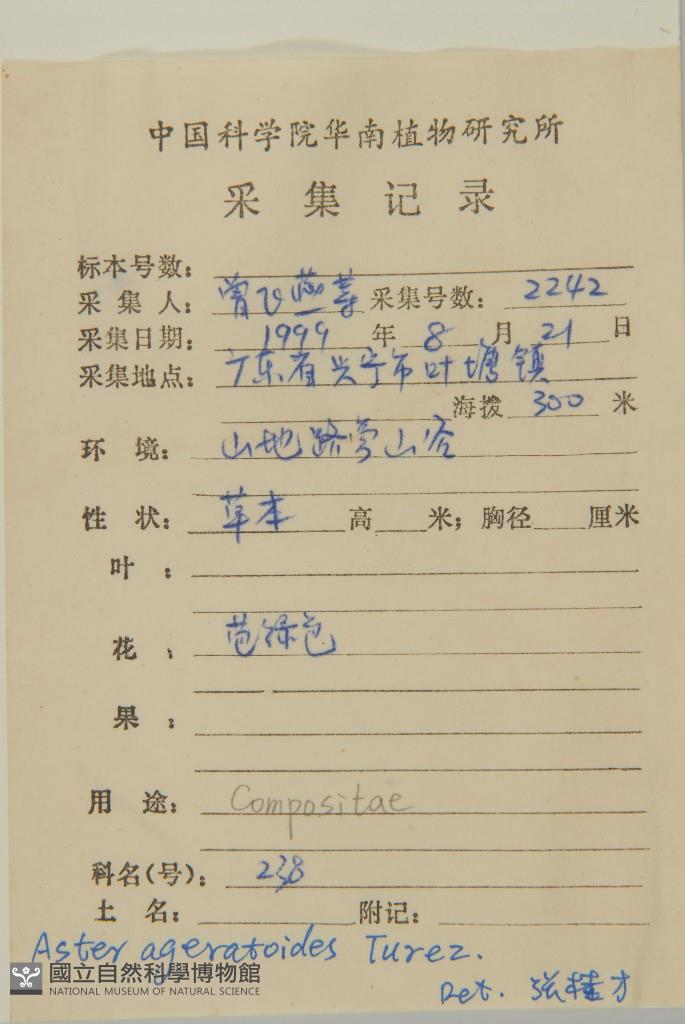 中国科学院华南植物研究所
采集记录
标本号数：
采集人：曾飞燕等 采集号数：2242
采集日期：1999年8月21日
采集地点：广东省兴宁市叶塘镇
海拨 300 米
环境：山地路旁山谷
性状：草本 高 米；胸径 厘米
叶：
花：苞绿色
果：
用途：Compositae
科名(号)：238
土名： 附记：
Aster ageratoides Turez.
國立自然科學博物館
NATIONAL MUSEUM OF NATURAL SCIENCE
Det. 张桂才